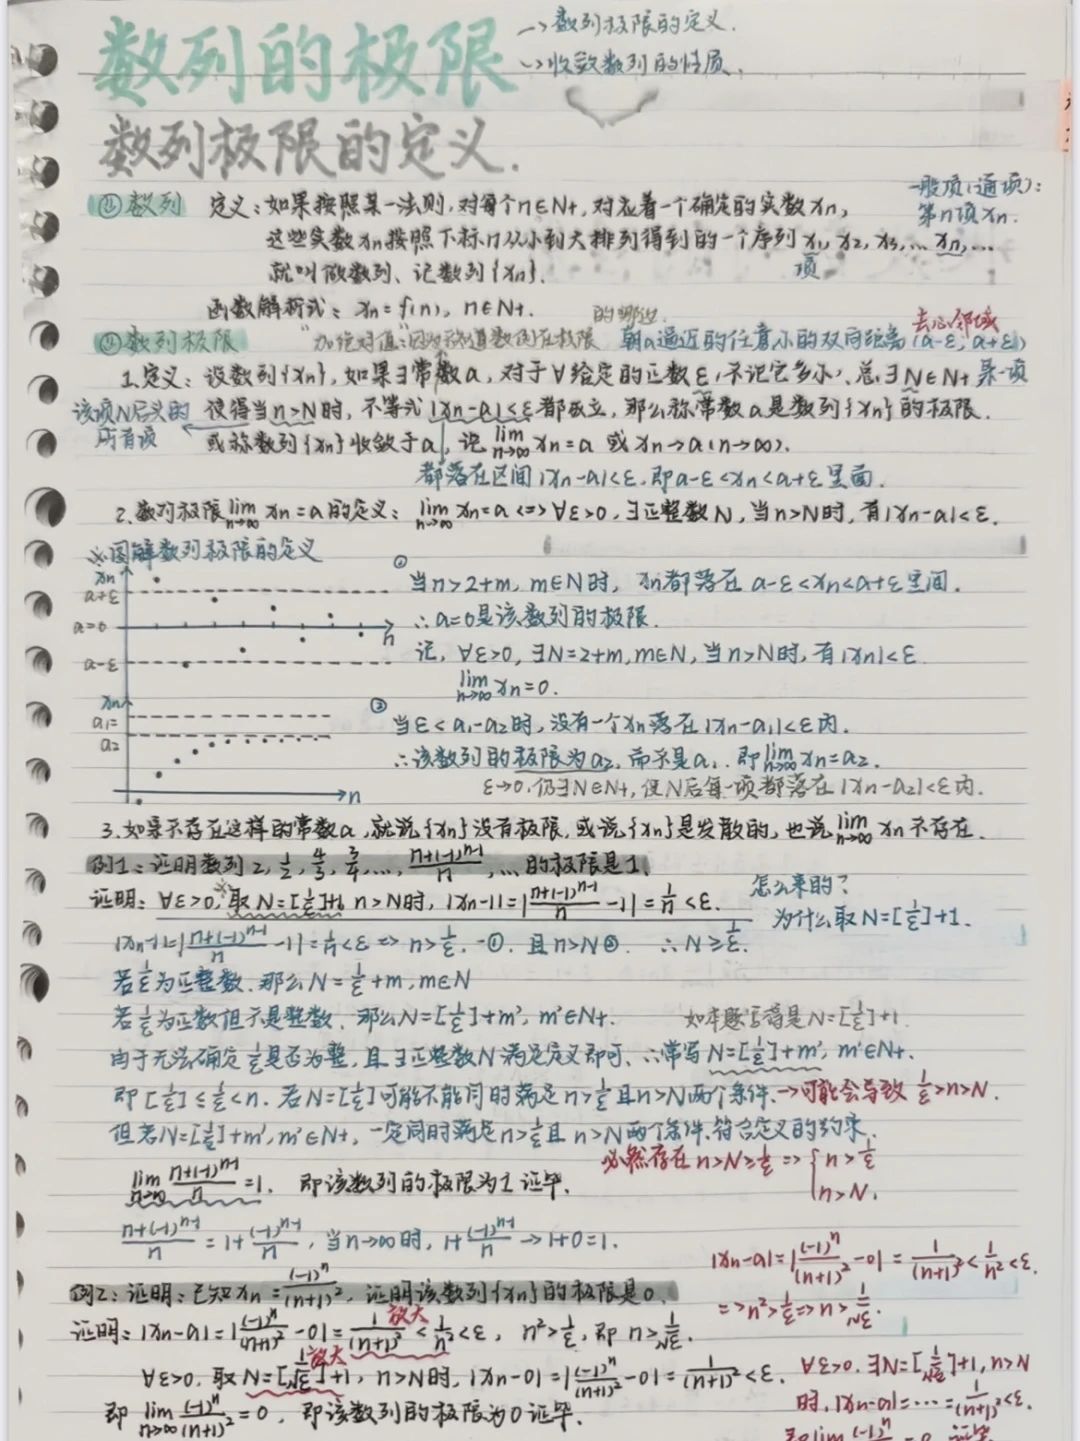 数列的极限
→数列极限的定义.
→收敛数列的性质.
数列极限的定义.
一般项(通项):
第n项xn.
① 数列 定义:如果按照某一法则,对每个n∈N+,对应着一个确定的实数xn,
这些实数xn按照下标n从小到大排列得到的一个序列 x1, x2, x3, … xn, …
项
就叫做数列、记数列{xn}.
函数解析式: xn = f(n), n∈N+.
去心邻域
② 数列极限
朝a逼近的任意小的双向距离 (a-ε, a+ε)
1.定义:设数列{xn},如果∃常数a,对于∀给定的正数ε(不论它多小)、总∃N∈N+ 某一项
该项N后头的
所有项
使得当n>N时,不等式|xn-a|<ε都成立,那么称常数a是数列{xn}的极限.
或称数列{xn}收敛于a,记 lim n→∞ xn=a 或 xn→a(n→∞).
都落在区间|xn-a|<ε,即a-ε<xn<a+ε里面.
2.数列极限 lim n→∞ xn=a的定义: lim n→∞ xn=a <=> ∀ε>0,∃正整数N,当n>N时,有|xn-a|<ε.
※图解数列极限的定义
xn
a+ε
a=0
n
a-ε
① 当n>2+m, m∈N时, xn都落在 a-ε<xn<a+ε里间.
∴a=0是该数列的极限.
记, ∀ε>0, ∃N=2+m, m∈N, 当n>N时,有|xn|<ε
lim n→∞ xn=0.
xn
a1=
a2
n
② 当ε<a1-a2时,没有一个xn落在|xn-a1|<ε内.
∴该数列的极限为a2,而不是a1. 即 lim n→∞ xn=a2.
ε→0,仍∃N∈N+,使N后每一项都落在|xn-a2|<ε内.
3.如果不存在这样的常数a,就说{xn}没有极限,或说{xn}是发散的,也说 lim n→∞ xn不存在.
例1:证明数列2, 1/2, 4/3, 3/4, …, (n+(-1)^(n-1))/n, …的极限是1.
证明: ∀ε>0,取N=[1/ε]+1, n>N时, |xn-1|=|(n+(-1)^(n-1))/n -1|=1/n<ε.
怎么来的?
为什么取N=[1/ε]+1.
|xn-1|=|(n+(-1)^(n-1))/n -1|=1/n<ε => n>1/ε. -①, 且n>N②. ∴N≥1/ε.
若1/ε为正整数,那么N=1/ε+m, m∈N
若1/ε为正数但不是整数,那么N=[1/ε]+m', m'∈N+.
如本题写得是N=[1/ε]+1.
由于无法确定1/ε是否为整,且∃正整数N满足定义即可, ∴常写N=[1/ε]+m', m'∈N+.
即[1/ε]≤1/ε<n. 若N=[1/ε]可能不能同时满足n>1/ε且n>N两个条件.→可能会导致 1/ε>n>N.
但若N=[1/ε]+m', m'∈N+, 一定同时满足n>1/ε且n>N两个条件,符合定义的约束.
必然存在n>N≥1/ε => { n>1/ε
n>N.
lim n→∞ (n+(-1)^(n-1))/n=1. 即该数列的极限为1证毕.
(n+(-1)^(n-1))/n = 1+(-1)^(n-1)/n, 当n→∞时, 1+(-1)^(n-1)/n →1+0=1.
例2:证明:已知xn=(-1)^n/(n+1)^2, 证明该数列{xn}的极限是0.
|xn-a|=|(-1)^n/(n+1)^2 -0|=1/(n+1)^2<1/n^2<ε.
=>n^2>1/ε=>n>1/√ε.
放大
证明: |xn-a|=|(-1)^n/(n+1)^2 -0|=1/(n+1)^2<1/n^2<ε, n^2>1/ε,即 n>1/√ε.
放大
∀ε>0,取N=[1/√ε]+1, n>N时, |xn-0|=|(-1)^n/(n+1)^2 -0|=1/(n+1)^2<ε.
∀ε>0. ∃N=[1/√ε]+1, n>N
时, |xn-a|=…=1/(n+1)^2<ε.
即 lim n→∞ (-1)^n/(n+1)^2=0, 即该数列的极限为0证毕.